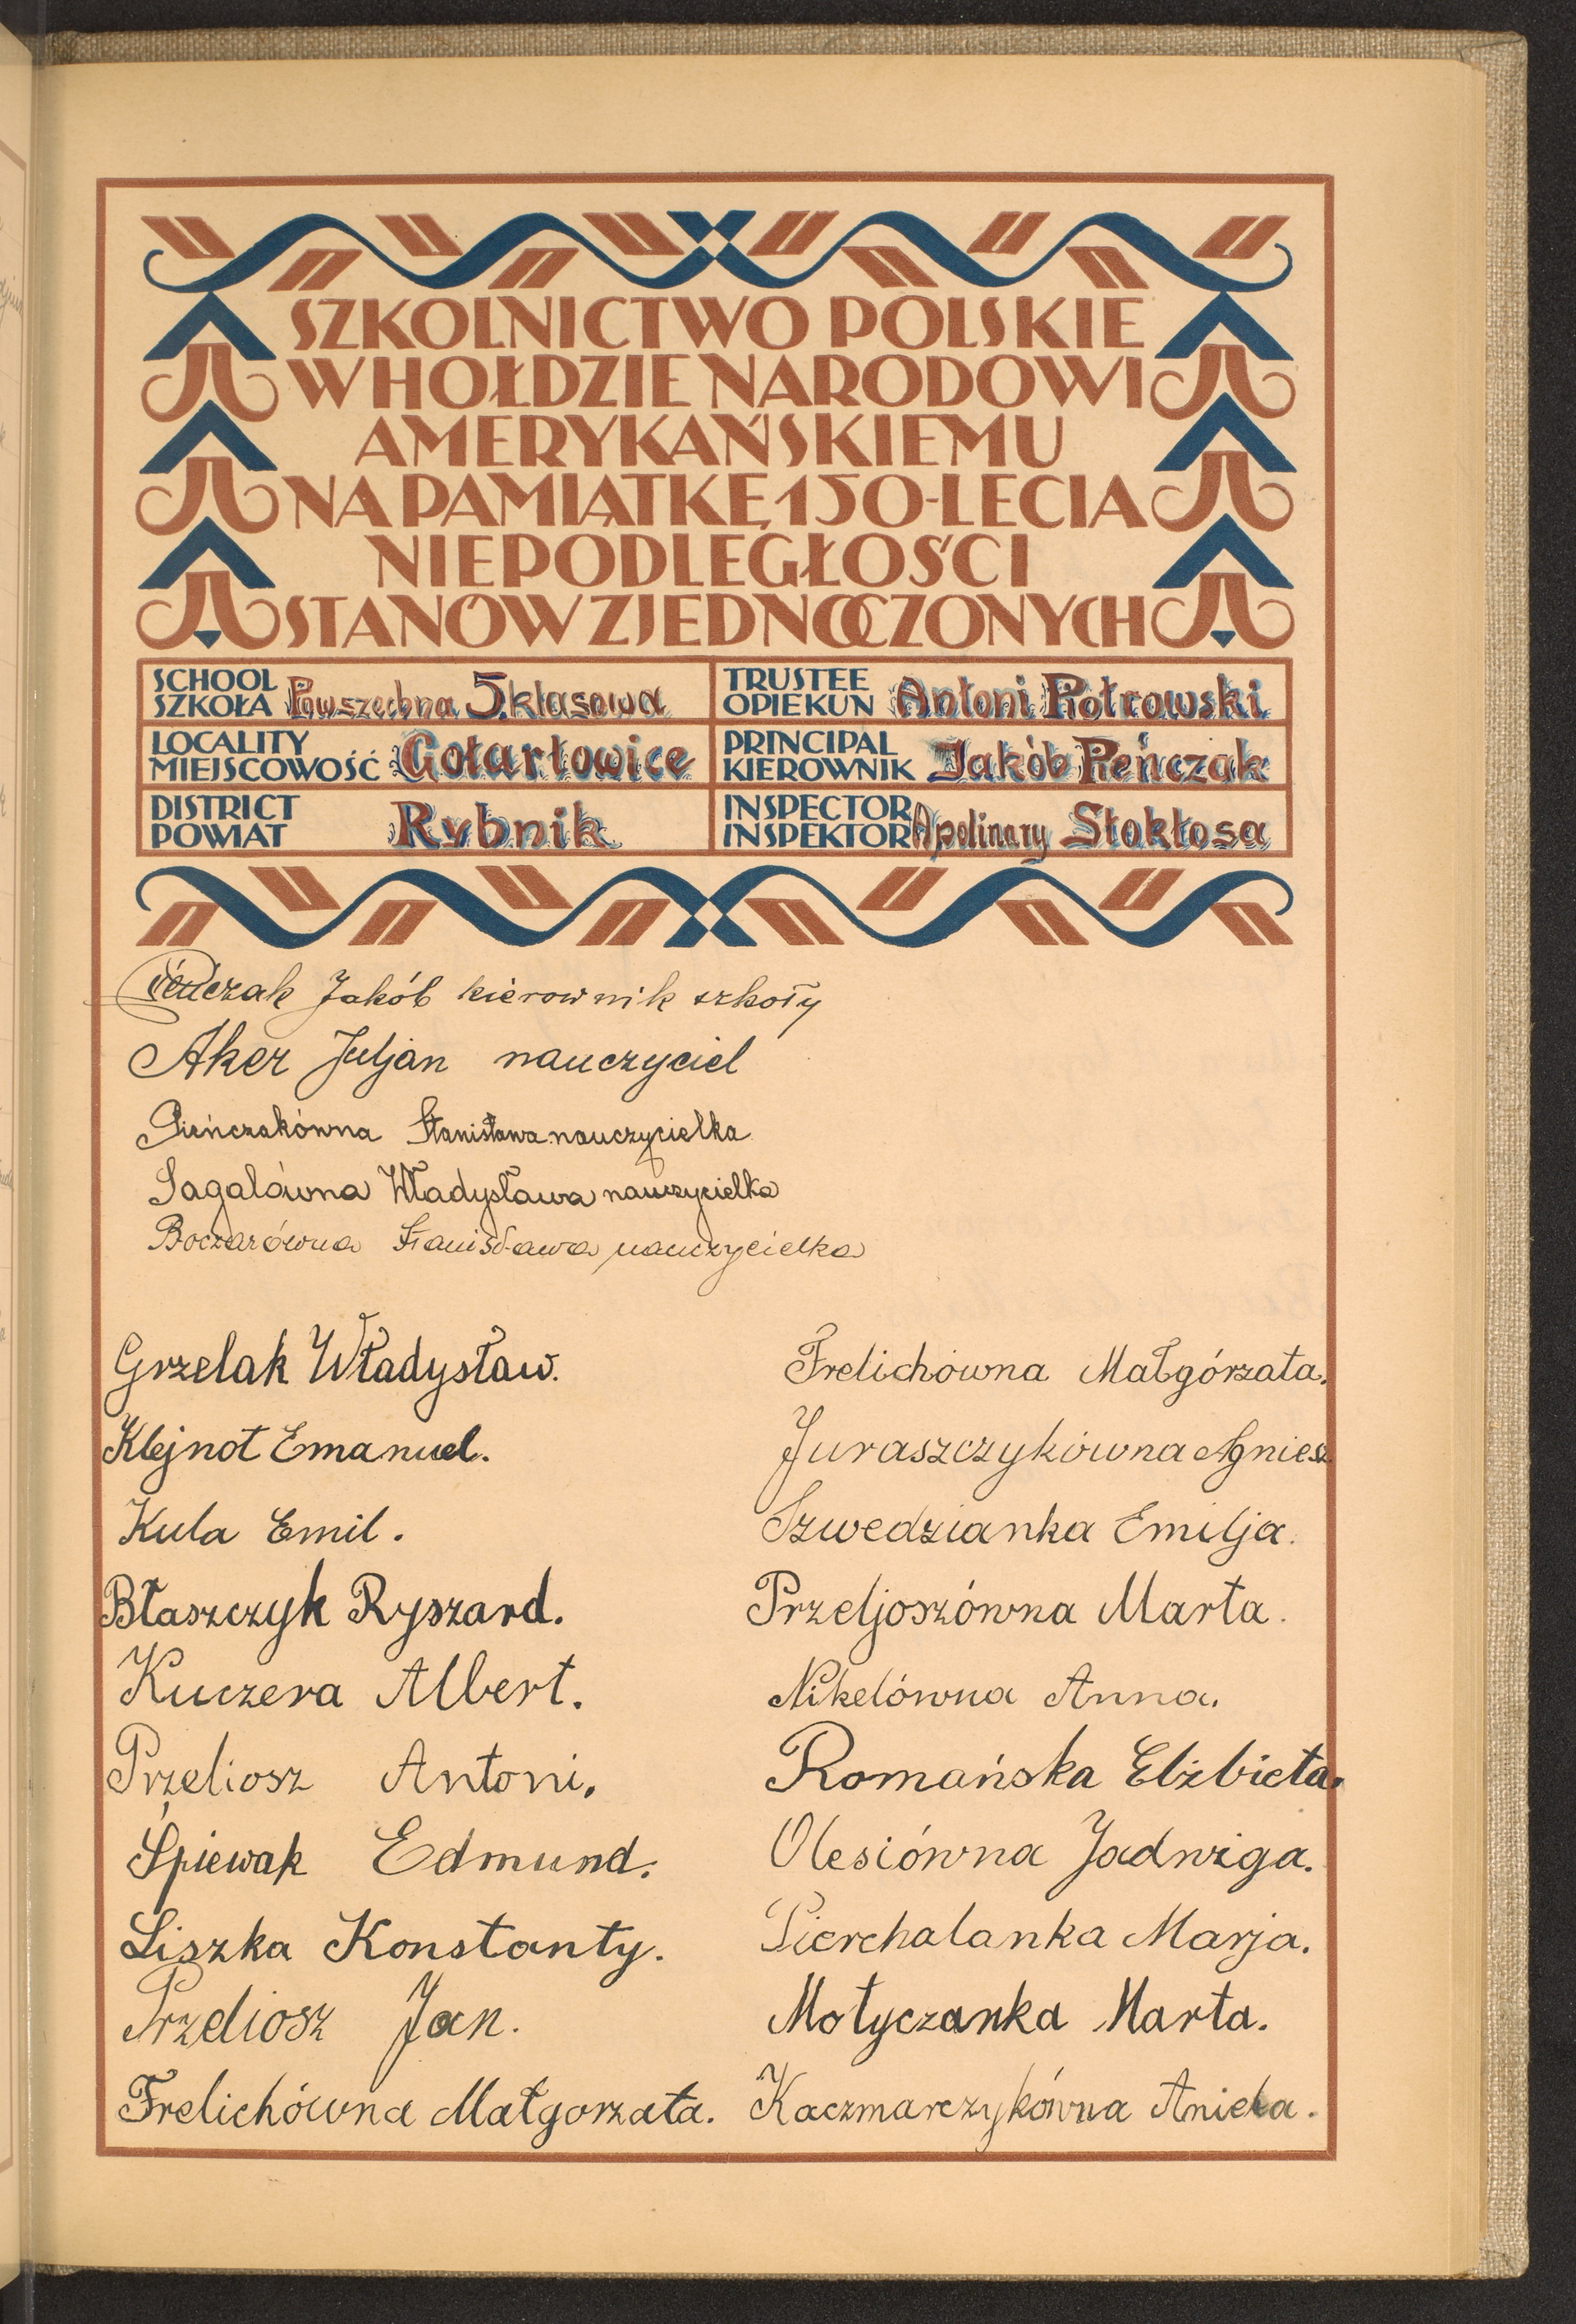 SZKOLNICTWO POLSKIE
W HOŁDZIE NARODOWI
AMERYKAŃSKIEMU
NA PAMIĄTKĘ 150-LECIA
NIEPODLEGŁOŚCI
STANÓW ZJEDNOCZONYCH
SCHOOL
SZKOŁA Powszechna 5.kłasowa
TRUSTEE
OPIEKUN Antoni Piotrowski
LOCALITY
MIEJSCOWOŚĆ Gotartowice
PRINCIPAL
KIEROWNIK Jakób Pieńczak
DISTRICT
POWIAT Rybnik
INSPECTOR
INSPEKTOR Apolinary Stokłosa
Pieńczak Jakób kierownik szkoły
Aker Juljan nauczyciel
Pieńczakówna Stanisława nauczycielka
Sagalówna Władysława nauczycielka
Boczarówna Stanisława nauczycielka
Grzelak Władysław.
Klejnot Emanuel.
Kula Emil.
Błaszczyk Ryszard.
Kuczera Albert.
Przeliosz Antoni.
Śpiewak Edmund.
Liszka Konstanty.
Przeliosz Jan.
Frelichówna Małgorzata.
Frelichówna Małgórzata.
Juraszczykówna Agniesz
Szwedzianka Emilja.
Przeljoszówna Marta.
Nikelówna Anna.
Romańska Elżbieta.
Olesiówna Jadwiga.
Pierchalanka Marja.
Motyczanka Marta.
Kaczmarczykówna Aniela.